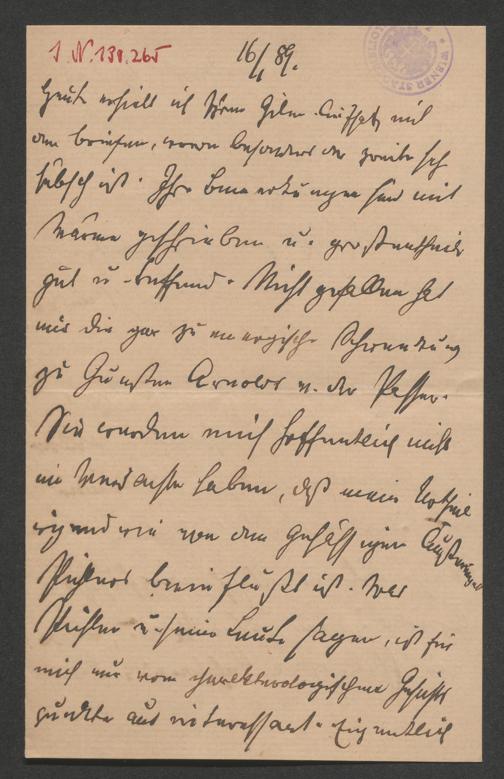 I. N. 138.265
16/4 89.
WIENER STA
Heute erhielt ich Ihren Gilm-Aufsatz mit
den Briefen, wovon besonders der zweite sehr
hübsch ist. Ihre Bemerkungen sind mit
Wärme geschrieben u. großentheils
gut u. treffend. Nicht gefallen hat
mir die gar zu energische Schwenkung
zu Gunsten Arnolds v. der Passer.
Sie werden mich hoffentlich nicht
im Verdachte haben, daß mein Urtheil
irgendwie von den gehässigen Äußerungen
Pichlers beeinflußt ist. Was
Pichler u. seine Leute sagen, ist für
mich nur vom charakterologischen Gesichts
punkte aus interessant. Eigentlich